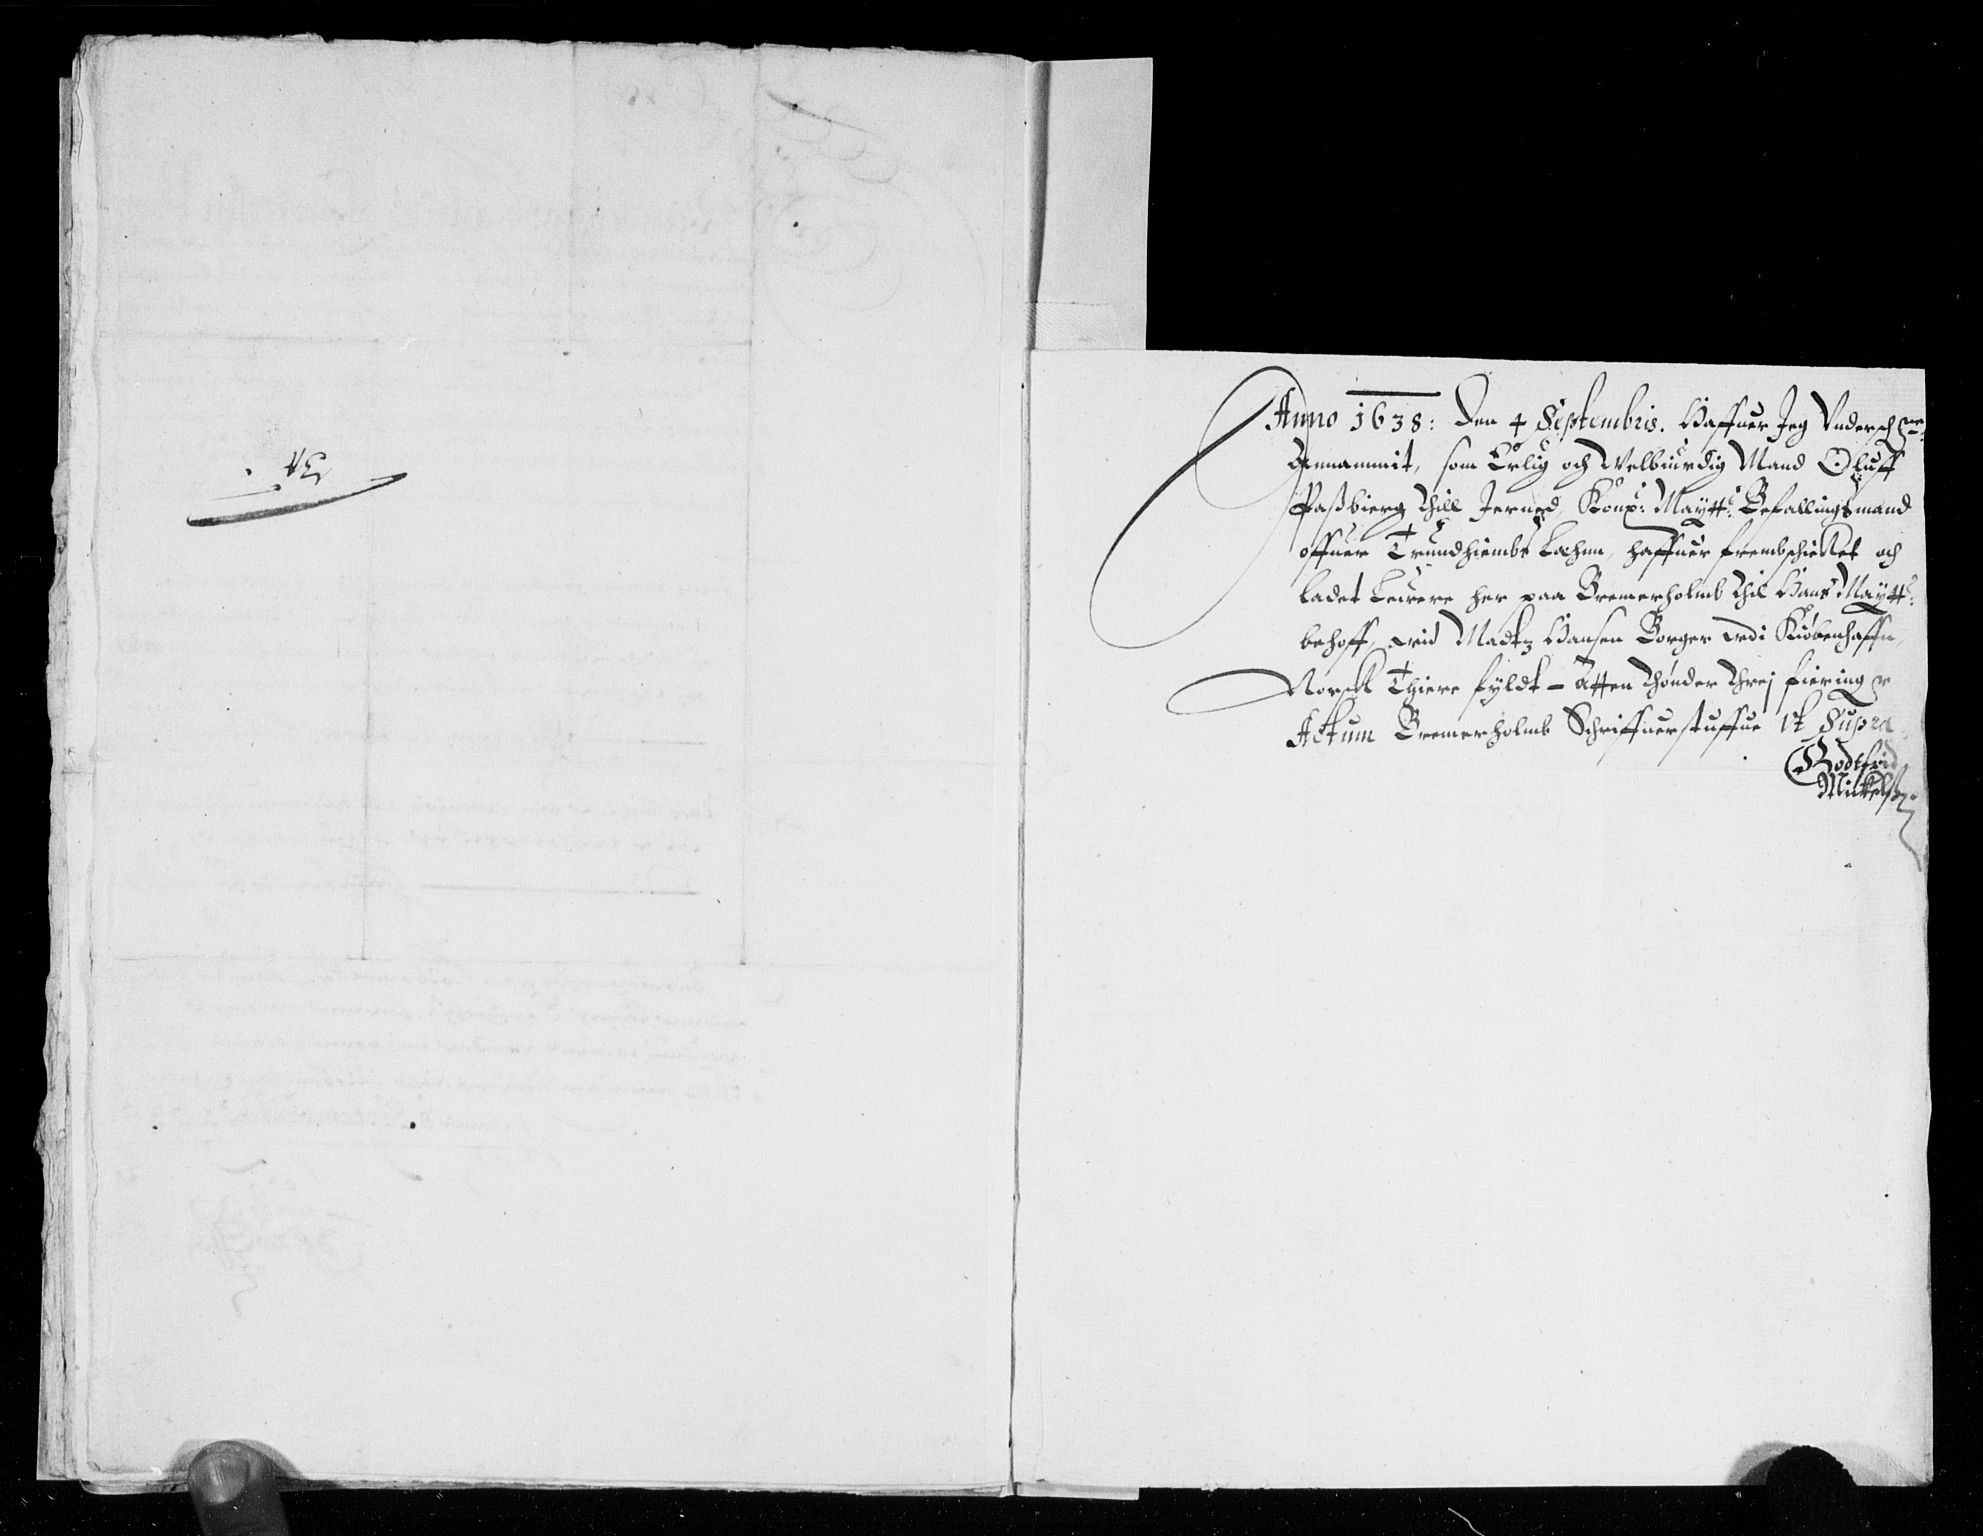 Anno 1638: Den 4 Septembris. Haffuer Jeg Vnderschr:
Annammit, som Erlig och Welbiurdig Mand Oluff
Passbierg thill Jerned, Kong: Maytt: Befallingsmand
offuer Trundhiembs Lehnn, haffuer frembschicket och
ladet Leuere her paa Bremerholmb thil Hans Maytt:
behoff, wid Madtz Hansen Borger vdi Kiøbenhaffn,
Norsk Thiere fyldt - Atten thønder threj fiering er
Actum Bremerholmb Schriffuerstuffue Vt Supra.
Godtfrid
Mickels: